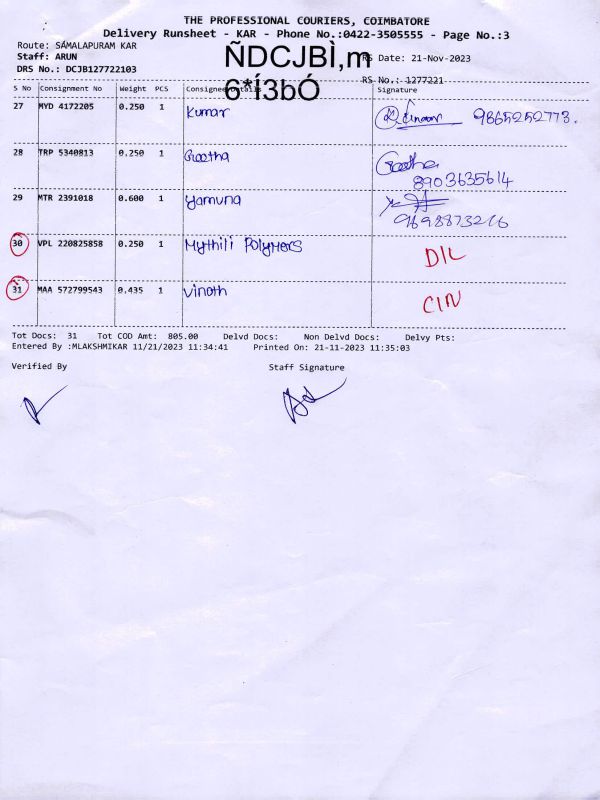 THE PROFESSIONAL COURIERS, COIMBATORE
Delivery Runsheet - KAR - Phone No.:0422-3505555 - Page No.:3
Route: SAMALAPURAM KAR
ÑDCJBÌ,m RS Date: 21-Nov-2023
Staff: ARUN
DRS No.: DCJB127722103
6*Í3bÓ RS No.: 1277221
S No Consignment No Weight PCS Consignee Details Signature
27 MYD 4172205 0.250 1 Kumar 9865252773.
28 TRP 5340813 0.250 1 Geetha Geetha
8903635614
29 MTR 2391018 0.600 1 Yamuna
9698873216
30 VPL 220825858 0.250 1 Mythili Polymers D/L
31 MAA 572799543 0.435 1 Vinoth C/N
Tot Docs: 31 Tot COD Amt: 805.00 Delvd Docs: Non Delvd Docs: Delvy Pts:
Entered By :MLAKSHMIKAR 11/21/2023 11:34:41 Printed On: 21-11-2023 11:35:03
Verified By Staff Signature